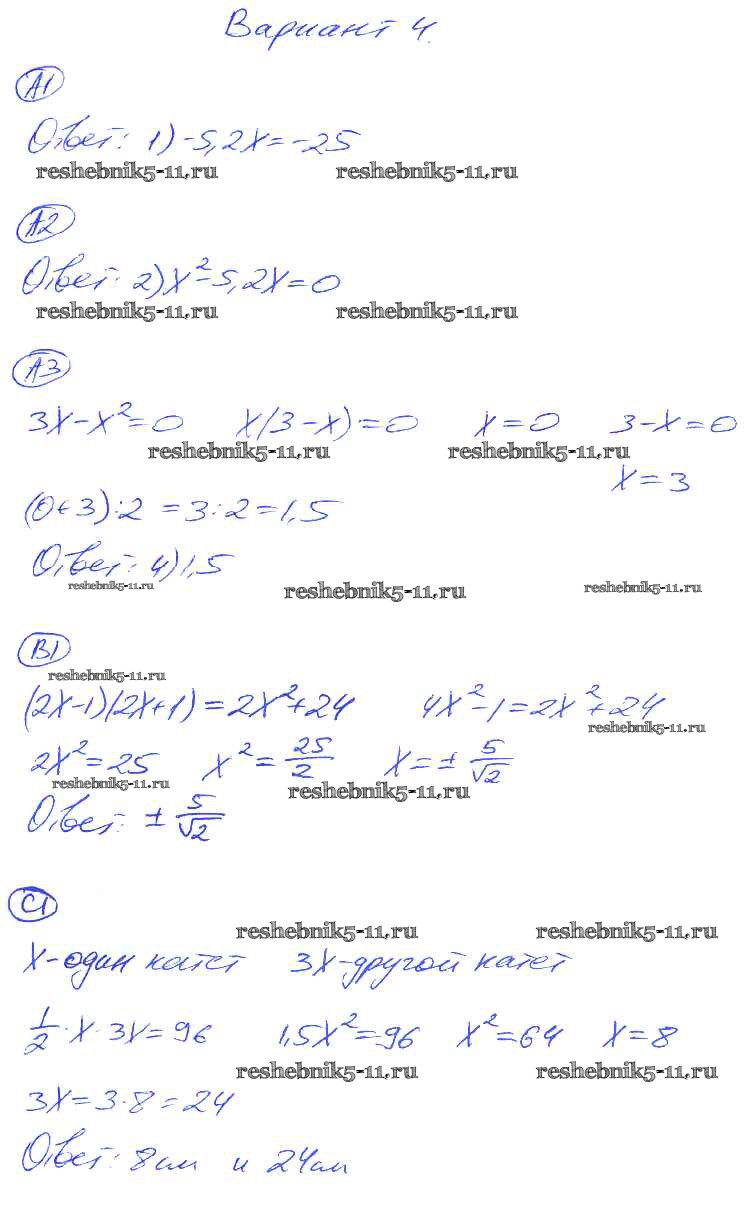 Вариант 4.
А1
Ответ: 1) -5,2x = -25
reshebnik5-11.ru reshebnik5-11.ru
А2
Ответ: 2) x² - 5,2x = 0
reshebnik5-11.ru reshebnik5-11.ru
А3
3x - x² = 0 x(3 - x) = 0 x = 0 3 - x = 0
reshebnik5-11.ru reshebnik5-11.ru
x = 3
(0 + 3) : 2 = 3 : 2 = 1,5
Ответ: 4) 1,5
reshebnik5-11.ru reshebnik5-11.ru reshebnik5-11.ru
В1
reshebnik5-11.ru
(2x - 1)(2x + 1) = 2x² + 24 4x² - 1 = 2x² + 24
reshebnik5-11.ru
2x² = 25 x² = 25/2 x = ± 5/√2
reshebnik5-11.ru reshebnik5-11.ru
Ответ: ± 5/√2
С1
reshebnik5-11.ru reshebnik5-11.ru
x - один катет 3x - другой катет
1/2 · x · 3x = 96 1,5x² = 96 x² = 64 x = 8
reshebnik5-11.ru reshebnik5-11.ru
3x = 3 · 8 = 24
Ответ: 8 см и 24 см